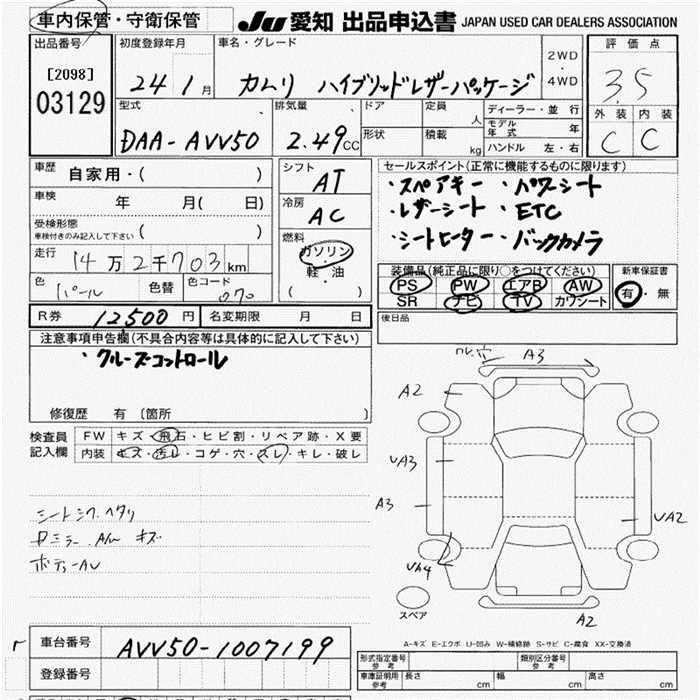 車内保管・守衛保管
JU 愛知 出品申込書 JAPAN USED CAR DEALERS ASSOCIATION
出品番号
[2098]
03129
初度登録年月
24 1月
車名・グレード
カムリ ハイブリッドレザーパッケージ
2WD
・
4WD
評価点
3.5
外装 内装
C C
型式
DAA-AVV50
排気量
2.49cc
ドア
定員
人
形状
積載
kg
ディーラー・並行
モデル年式 年
ハンドル 左・右
車歴
自家用・( )
車検
年 月( 日)
受検形態
車検付きのみ記入して下さい ( )
走行
14万2千703km
色
パール
色替
色コード
070
シフト
AT
冷房
AC
燃料
ガソリン
・
軽・油
( )
セールスポイント(正常に機能するものに限ります)
・スペアキー ・パワーシート
・レザーシート ・ETC
・シートヒーター ・バックカメラ
装備品(純正品に限り○をつけてください)
PS PW エアB AW
SR ナビ TV カワシート
新車保証書
有・無
後日品
R券 12500円
名変期限 月 日
注意事項申告欄(不具合内容等は具体的に記入して下さい)
・クルーズコントロール
修復歴 有 〔箇所 〕
検査員記入欄
FW キズ・飛石・ヒビ割・リペア跡・X要
内装 キズ・汚レ・コゲ・穴・スレ・キレ・破レ
シートシワ、ヘタリ
ボディーAU
A3
A2
UA3
A3
UA2
UA4
A2
スペア
A-キズ E-エクボ U-凹み W-補修跡 S-サビ C-腐食 XX-交換済
車台番号
AVV50-1007199
登録番号
形式指定番号
参考
類別区分番号
参考
車庫証明用
参考
長さ cm
幅 cm
高さ cm